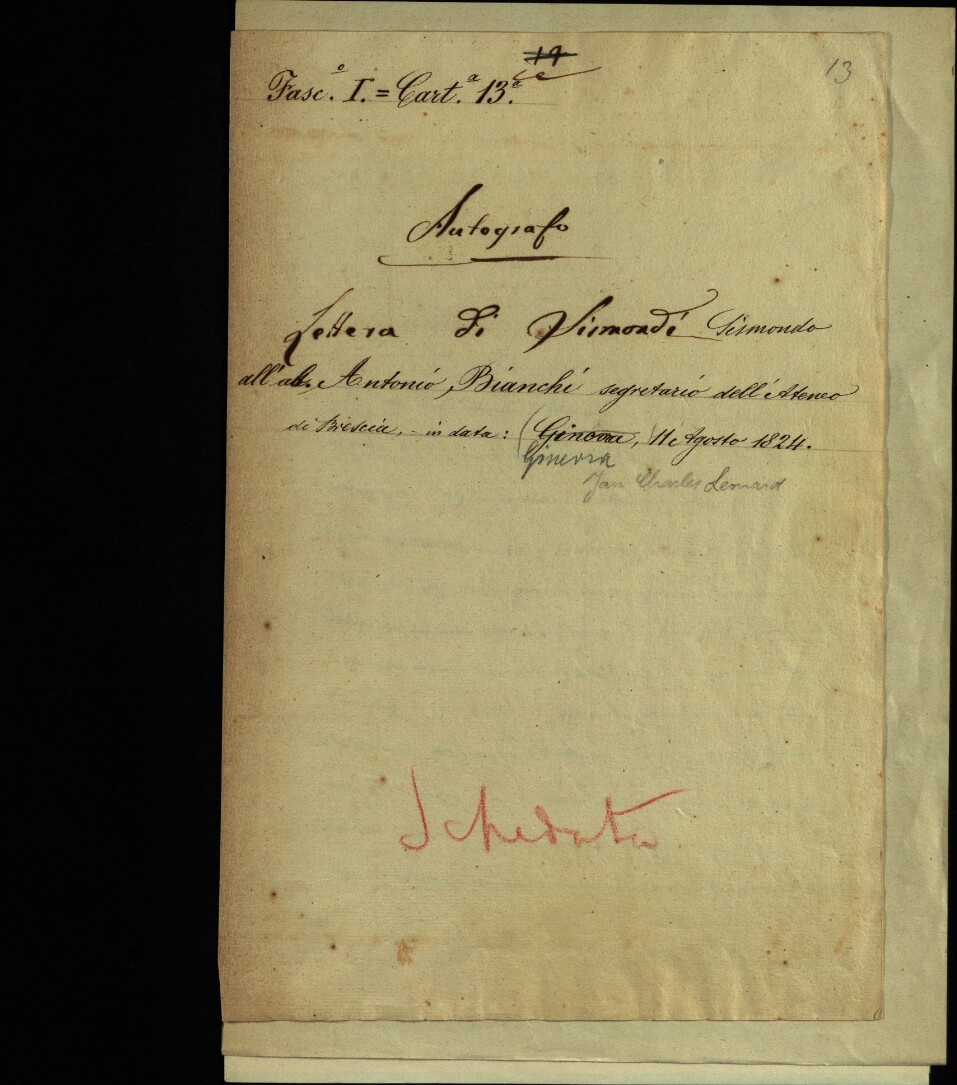 19
13
Fasc.º I. = Cart.ª 13.ª
Autografo
Lettera di Sismondi Sismondo
all'ab. Antonio Bianchi segretario dell'Ateneo
di Brescia, - in data: (Genova, 11 Agosto 1824.
Ginevra
Jan Charles Leonard
Schedata